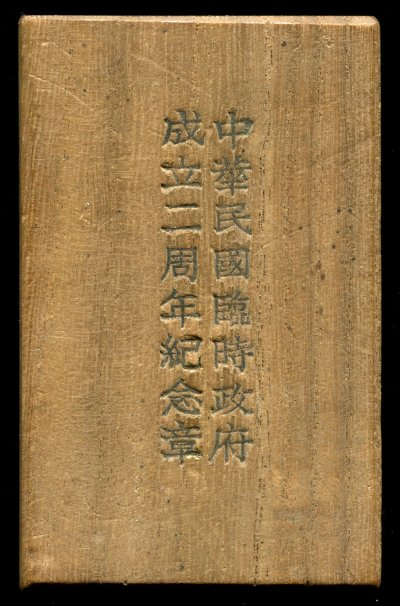 中華民國臨時政府
成立二周年紀念章